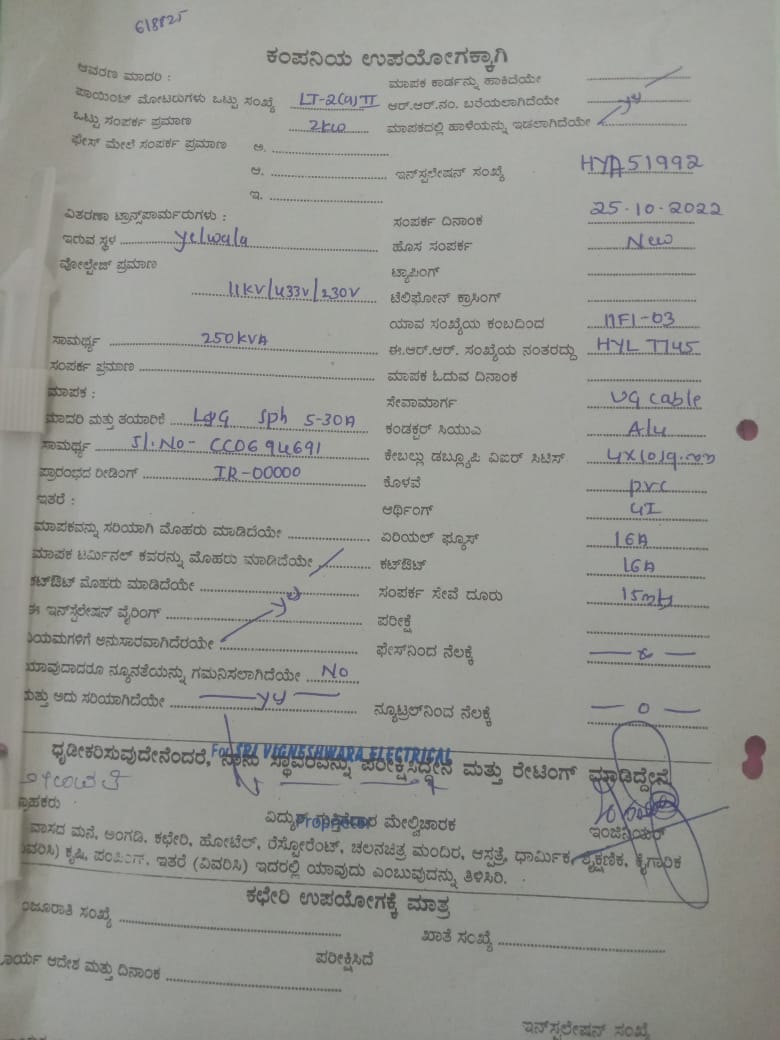 618825
ಕಂಪನಿಯ ಉಪಯೋಗಕ್ಕಾಗಿ
ಆವರಣ ಮಾದರಿ : ಮಾಪಕ ಕಾರ್ಡನ್ನು ಹಾಕಿದೆಯೇ
ಪಾಯಿಂಟ್ ಮೋಟರುಗಳು ಒಟ್ಟು ಸಂಖ್ಯೆ LT-2(a)II ಆರ್.ಆರ್.ನಂ. ಬರೆಯಲಾಗಿದೆಯೇ
ಒಟ್ಟು ಸಂಪರ್ಕ ಪ್ರಮಾಣ 2kw ಮಾಪಕದಲ್ಲಿ ಹಾಳೆಯನ್ನು ಇಡಲಾಗಿದೆಯೇ
ಫೇಸ್ ಮೇಲೆ ಸಂಪರ್ಕ ಪ್ರಮಾಣ ಅ.
ಆ. ಇನ್‌ಸ್ಟಲೇಷನ್ ಸಂಖ್ಯೆ HYA51992
ಇ.
ವಿತರಣಾ ಟ್ರಾನ್ಸ್‌ಫಾರ್ಮರುಗಳು : ಸಂಪರ್ಕ ದಿನಾಂಕ 25-10-2022
ಇರುವ ಸ್ಥಳ yelwala ಹೊಸ ಸಂಪರ್ಕ New
ವೋಲ್ಟೇಜ್ ಪ್ರಮಾಣ ಟ್ಯಾಪಿಂಗ್
11KV/433V/230V ಟೆಲಿಫೋನ್ ಕ್ರಾಸಿಂಗ್
ಯಾವ ಸಂಖ್ಯೆಯ ಕಂಬದಿಂದ
ಸಾಮರ್ಥ್ಯ 250KVA ಈ.ಆರ್.ಆರ್. ಸಂಖ್ಯೆಯ ನಂತರದ್ದು
ಸಂಪರ್ಕ ಪ್ರಮಾಣ ಮಾಪಕ ಓದುವ ದಿನಾಂಕ
ಮಾಪಕ : ಸೇವಾಮಾರ್ಗ UG cable
ಮಾದರಿ ಮತ್ತು ತಯಾರಿಕೆ L&G Sph 5-30A ಕಂಡಕ್ಟರ್ ಸಿಯುಎ Alu
ಸಾಮರ್ಥ್ಯ Sl.No- CC0694691 ಕೇಬಲ್ಲು ಡಬ್ಲ್ಯೂಪಿ ವಿಐರ್ ಸಿಟಿಸ್
ಪ್ರಾರಂಭದ ರೀಡಿಂಗ್ IR-00000 ಕೊಳವೆ pvc
ಇತರೆ : ಅರ್ಥಿಂಗ್ GI
ಮಾಪಕವನ್ನು ಸರಿಯಾಗಿ ಮೊಹರು ಮಾಡಿದೆಯೇ ಏರಿಯಲ್ ಫ್ಯೂಸ್ 16A
ಮಾಪಕ ಟರ್ಮಿನಲ್ ಕವರನ್ನು ಮೊಹರು ಮಾಡಿದೆಯೇ ಕಟ್‌ಔಟ್ 16A
ಕಟ್‌ಔಟ್ ಮೊಹರು ಮಾಡಿದೆಯೇ ಸಂಪರ್ಕ ಸೇವೆ ದೂರು
ಈ ಇನ್‌ಸ್ಟಲೇಷನ್ ವೈರಿಂಗ್ ಪರೀಕ್ಷೆ
ನಿಯಮಗಳಿಗೆ ಅನುಸಾರವಾಗಿದೆರಯೇ ಫೇಸ್‌ನಿಂದ ನೆಲಕ್ಕೆ
ಯಾವುದಾದರೂ ನ್ಯೂನತೆಯನ್ನು ಗಮನಿಸಲಾಗಿದೆಯೇ No
ಮತ್ತು ಅದು ಸರಿಯಾಗಿದೆಯೇ ನ್ಯೂಟ್ರಲ್‌ನಿಂದ ನೆಲಕ್ಕೆ — 0 —
For SRI VIGNESHWARA ELECTRICAL
ಧೃಡೀಕರಿಸುವುದೇನೆಂದರೆ, ನಾನು ಸ್ಥಾವರವನ್ನು ಪರೀಕ್ಷಿಸಿದ್ದೇನೆ ಮತ್ತು ರೇಟಿಂಗ್ ಮಾಡಿದ್ದೇನೆ
ಗ್ರಾಹಕರು ವಿದ್ಯುತ್ ಗುತ್ತಿಗೆದಾರ ಮೇಲ್ವಿಚಾರಕ ಇಂಜಿನಿಯರ್
Proprietor
ವಾಸದ ಮನೆ, ಅಂಗಡಿ, ಕಛೇರಿ, ಹೋಟೆಲ್, ರೆಸ್ಟೋರೆಂಟ್, ಚಲನಚಿತ್ರ ಮಂದಿರ, ಆಸ್ಪತ್ರೆ, ಧಾರ್ಮಿಕ, ಶೈಕ್ಷಣಿಕ, ಕೈಗಾರಿಕ
ವಿವರಿಸಿ) ಕೃಷಿ, ಪಂಪಿಂಗ್, ಇತರೆ (ವಿವರಿಸಿ) ಇದರಲ್ಲಿ ಯಾವುದು ಎಂಬುವುದನ್ನು ತಿಳಿಸಿರಿ.
ಕಛೇರಿ ಉಪಯೋಗಕ್ಕೆ ಮಾತ್ರ
ಮಂಜೂರಾತಿ ಸಂಖ್ಯೆ ಖಾತೆ ಸಂಖ್ಯೆ
ಕಾರ್ಯ ಆದೇಶ ಮತ್ತು ದಿನಾಂಕ ಪರೀಕ್ಷಿಸಿದೆ
ಇನ್‌ಸ್ಟಲೇಷನ್ ಸಂಖ್ಯೆ